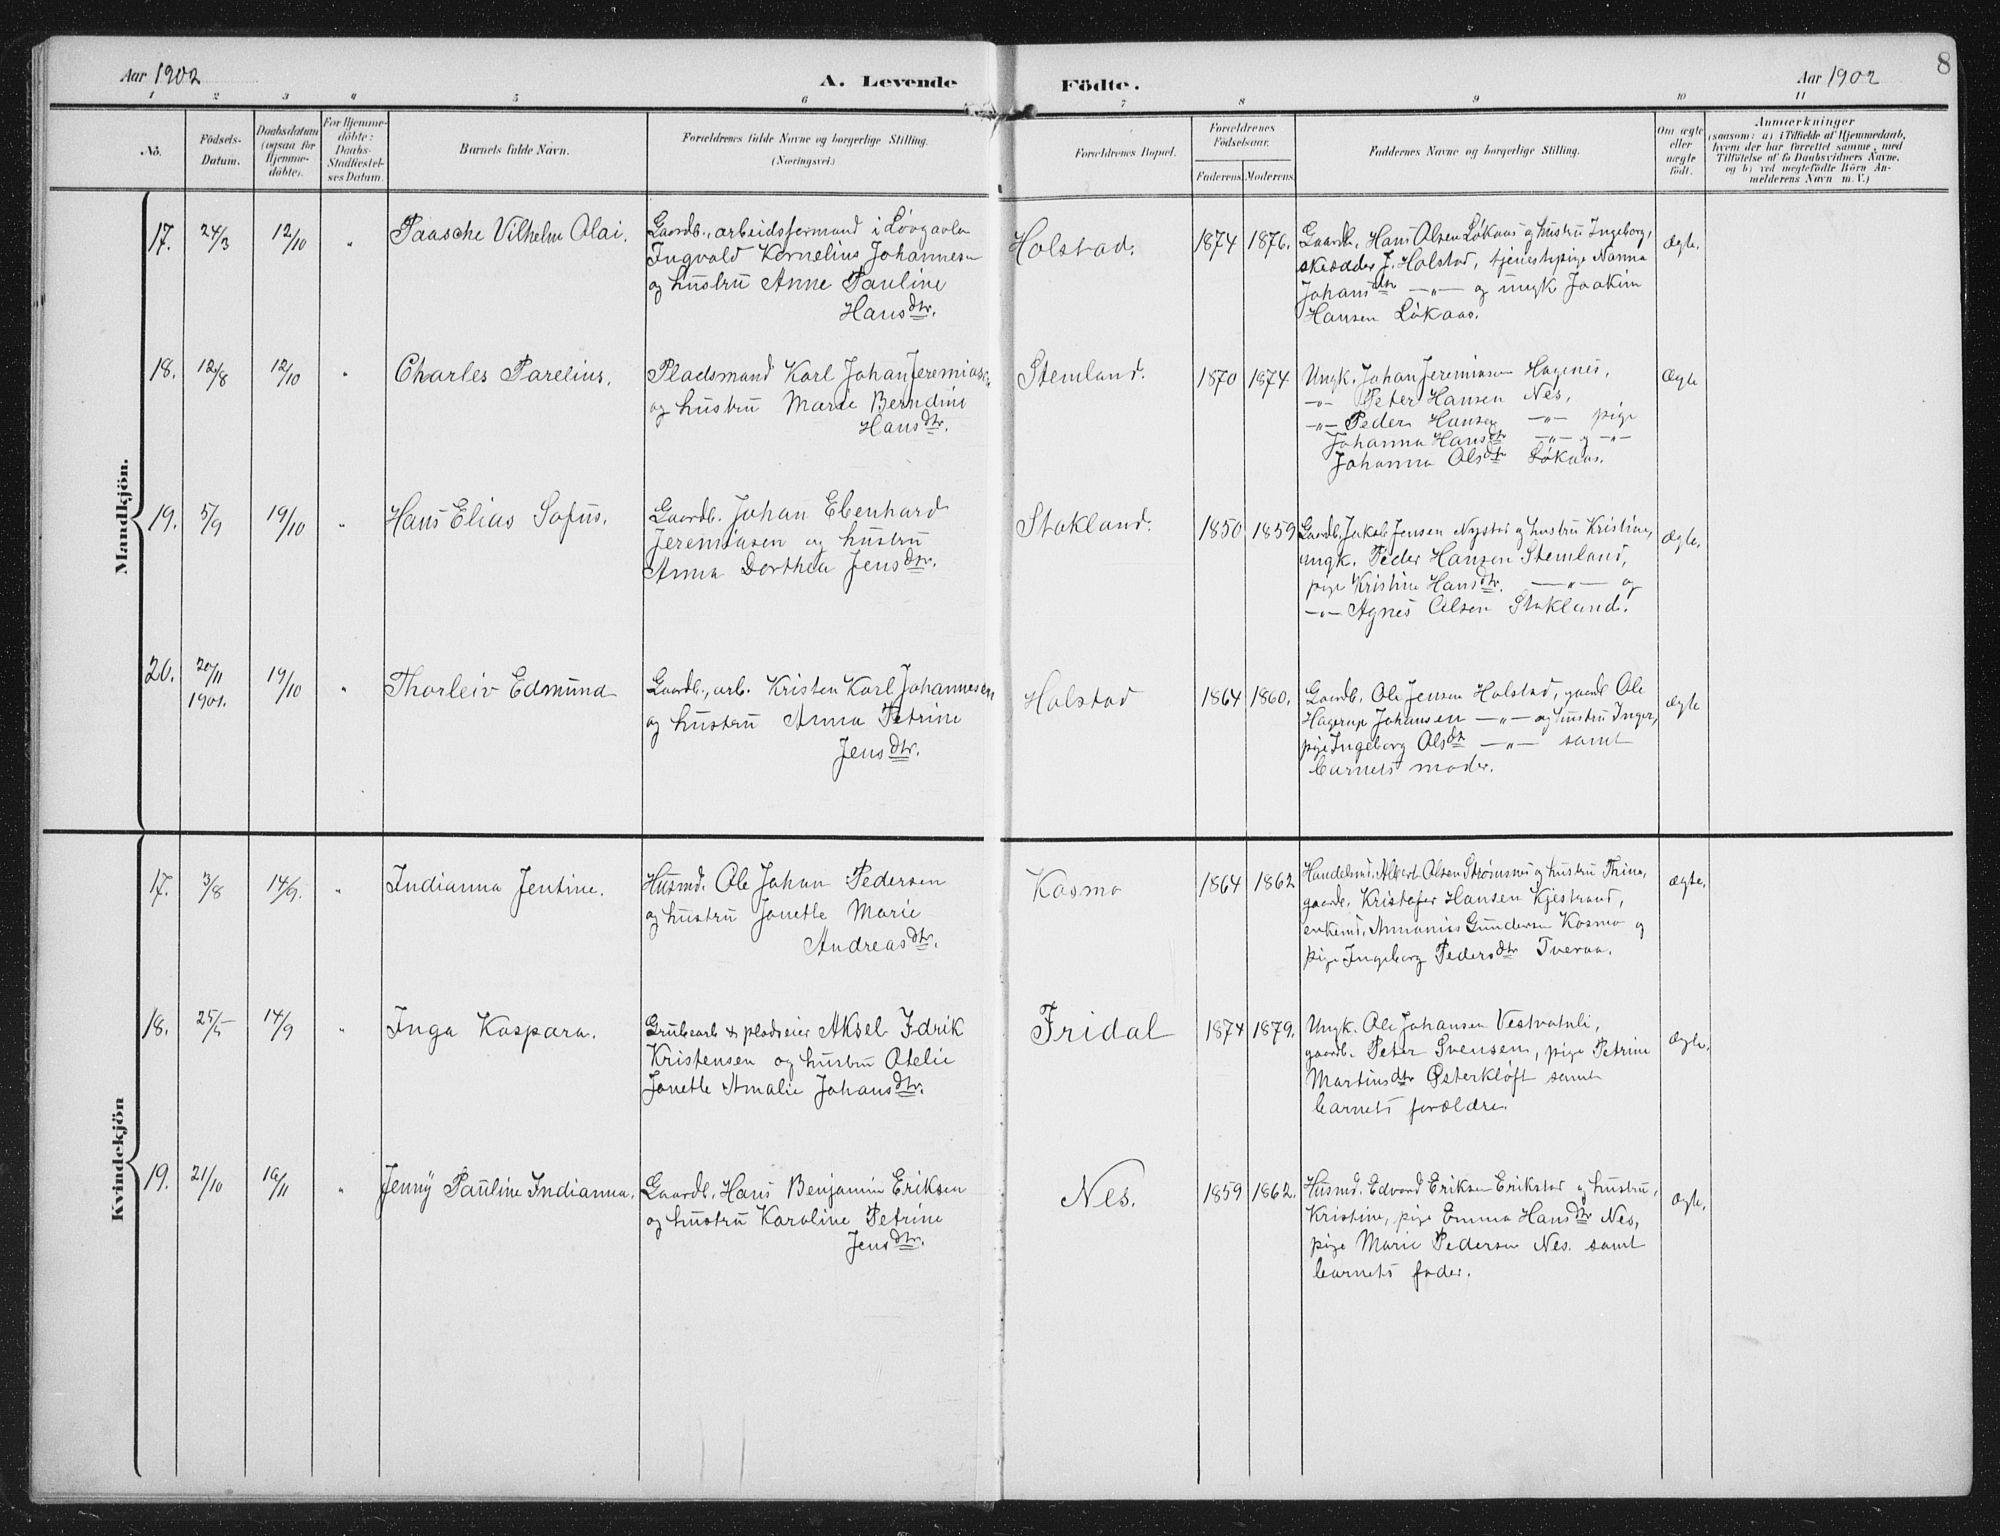 Aar 1902
A. Levende
Födte.
Aar 1902
8
1 2 3 4 5 6 7 8 9 10 11
No.
Födsels-
Datum.
Daabsdatum
(ogsaa for
Hjemme-
döbte).
For Hjemme-
döbte:
Daabs-
Stadfæstel-
ses Datum.
Barnets fulde Navn.
Forældrenes fulde Navne og borgerlige Stilling.
(Næringsvei.)
Forældrenes Bopæl.
Forældrenes
Födselsaar.
Faderens. Moderens.
Faddernes Navne og borgerlige Stilling.
Om ægte
eller
uægte
født.
Anmærkninger
(saasom: a) i Tilfælde af Hjemmedaab,
hvem der har forrettet samme, med
Tilföielse af to Daabsvidners Navne,
og b) ved uægtefödte Börn An-
melderens Navn m. V.)
Mandkjön.
17. 24/3 12/10 " Paasche Vilhelm Olai.
Gaardb., arbeidsformand i Løvgavlen
Ingvald Kornelius Johannesen
og hustru Anne Pauline
Hansdtr.
Holstad.
1874 1876.
Gaardb. Hans Olsen Løkaas og hustru Ingeborg,
skrædder J. Holstad, tjenestepige Nanna
Johansdtr —"— og ungk Joakim
Hansen Løkaas.
Ægte.
18. 12/8 12/10 " Charles Parelius.
Pladsmand Karl Johan Jeremiasen
og hustru Marie Berndine
Hansdtr.
Stemland.
1870 1874
Ungk. Johan Jeremiasen Hagenes,
—"— Peter Hansen Nes,
—"— Peder Hansen —"— pige
Johanna Hansdtr —"— og —"—
Johanna Olsdtr Løkaas.
Ægte
19. 5/9 19/10 " Hans Elias Sofus.
Gaardb. Johan Ebenhard
Jeremiasen og hustru
Anna Dorthea Jensdtr.
Stokland.
1850 1859
Gaardb. Jakob Jensen Nystad og hustru Kristine,
ungk. Peder Hansen Stemland,
pige Kristine Hansdtr. —"— og
—"— Agnes Olsen Stokland.
Ægte.
20. 20/11 1901. 19/10 " Thorleiv Edmund
Gaardb., arb. Kristen Karl Johannesen
og hustru Anna Petrine
Jensdtr.
Holstad
1864 1860.
Gaardb. Ole Jensen Holstad, gaardb Ole
Hagerup Johansen —"— og hustru Inger,
pige Ingeborg Olsdtr —"— samt
barnets moder.
Ægte
Kvindekjön
17. 3/8 14/9. " Indianna Jentine.
Husmd. Ole Johan Pedersen
og hustru Jonette Marie
Andreasdtr.
Kosmo
1864 1862
Handelsmd. Albert Olsen Strøsnes og hustru Thina,
gaardb. Kristofer Hansen Kjestrand,
enkemd. Annanias Gundersen Kosmo og
pige Ingeborg Pedersdtr Tveraa.
Ægte.
18. 25/5 14/9 " Inga Kaspara.
Grubearb & pladseier Aksel Idrik
Kristensen og hustru Otelie
Jonette Amalie Johansdtr.
Fridal
1874 1879.
Ungk. Ole Johansen Vestvatnli,
gaardb. Peter Svensen, pige Petrine
Martinsdtr Østerkløft samt
barnets forældre.
Ægte.
19. 21/10 16/11 " Jenny Pauline Indianna.
Gaardb. Hans Benjamin Eriksen
og hustru Karoline Petrine
Jensdtr.
Nes.
1859 1862.
Husmd. Edvard Eriksen Erikstad og hustru,
Kristine, pige Emma Hansdtr Nes,
pige Marie Pedersen Nes. samt
barnets fader.
Ægte.